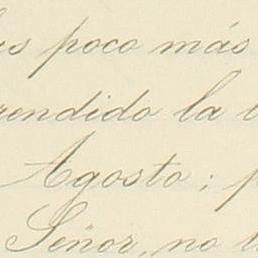 poco más
rendido la
Agosto; p
Señor, no